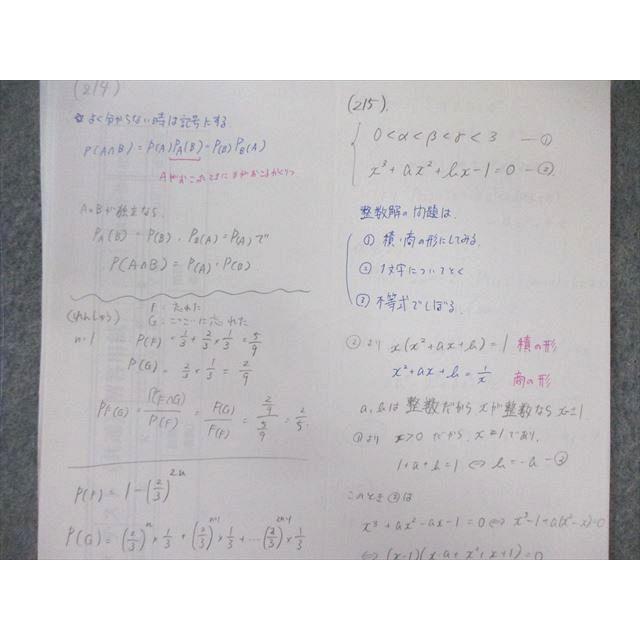 (214)
☆よく分からない時は記号にする.
P(A∩B) = P(A)P_A(B) = P(B)P_B(A)
Aがおこったときに Bがおこるかくりつ
AとBが独立なら,
P_A(B) = P(B), P_B(A) = P(A) で
P(A∩B) = P(A)・P(B).
(れんしゅう)
F = 忘れた
G = ここに忘れた
n=1
P(F) = 1/3 + 2/3 × 1/3 = 5/9
P(G) = 2/3 × 1/3 = 2/9
P_F(G) = P(F∩G)/P(F) = P(G)/P(F) = (2/9)/(5/9) = 2/5.
P(F) = 1 - (2/3)^{2n}
P(G) = (2/3)^n × 1/3 + (2/3)^{n+1} × 1/3 + … (2/3)^{2n-1} × 1/3
(215).
0 < α < β < γ < 3 — ①
x³ + ax² + bx - 1 = 0 — ②
整数解の問題は.
① 積・商の形にしてみる.
② 1文字についてとく
③ 不等式でしぼる.
② より x(x² + ax + b) = 1 積の形
x² + ax + b = 1/x 商の形
a, bは整数だから xが整数なら x=±1
① より x>0 だから, x=1であり,
1 + a + b = 1 ⇔ b = -a — ③
このとき ②は
x³ + ax² - ax - 1 = 0 ⇔ x³ - 1 + a(x² - x) = 0
⇔ (x-1)(x・a + x² + x + 1) = 0